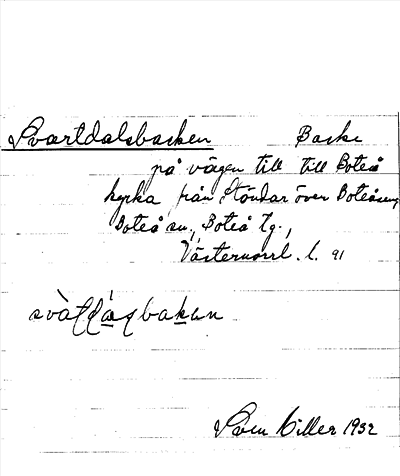 Svartdalsbacken Backe
på vägen till till Boteå
kyrka från Stöndar över Boteåsen,
Boteå sn., Boteå tg.,
Västernorrl. l. 91
Sven Hiller 1932